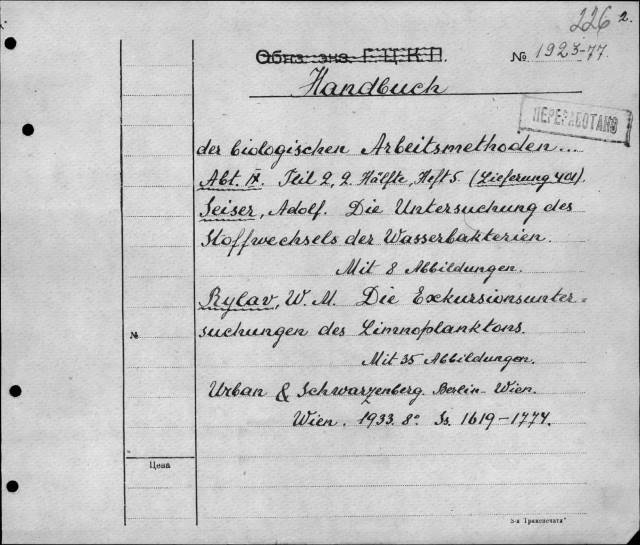 226 2.
Обяз. экз. Г.Ц.К.П.
№ 1923-77.
Handbuch
ПЕРЕРАБОТАНО
der biologischen Arbeitsmethoden...
Abt. IX. Teil 2, 2. Hälfte, Heft 5 (Lieferung 401).
Seiser, Adolf. Die Untersuchung des
Stoffwechsels der Wasserbakterien.
Mit 8 Abbildungen.
Rylav, W. M. Die Exkursionsunter-
№ suchungen des Limnoplanktons.
Mit 35 Abbildungen.
Urban & Schwarzenberg. Berlin-Wien.
Wien. 1933. 8° Ss. 1619-1774.
Цена
3-я Транспечати"